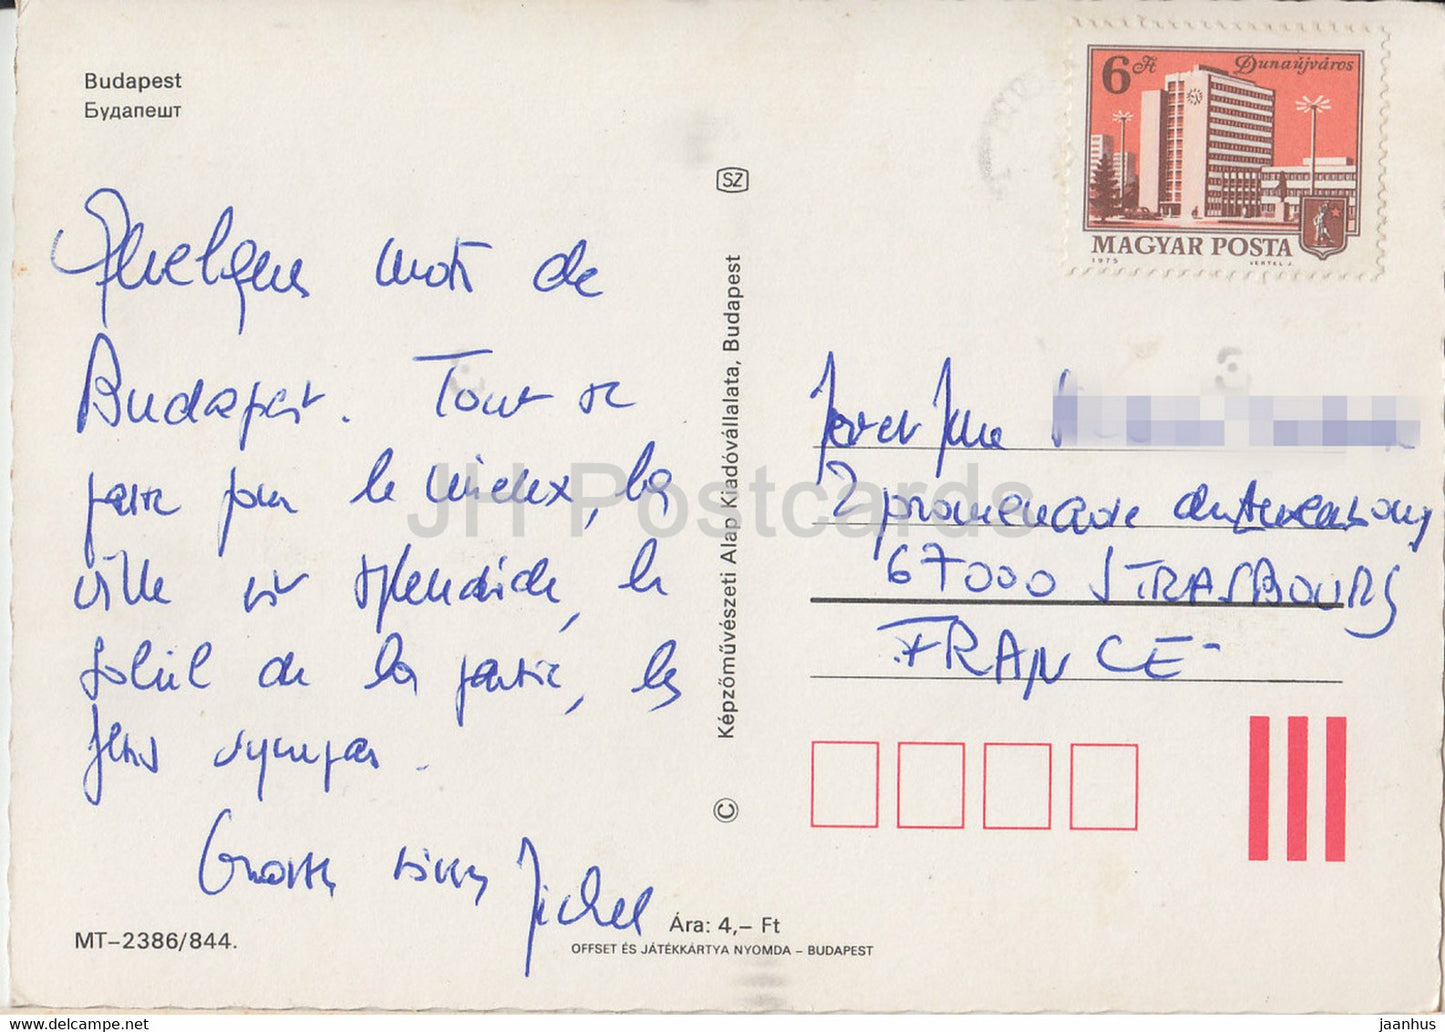 Budapest
Будапешт
Quelques mots de
Budapest. Tout se
passe pour le mieux, la
ville est splendide, le
soleil de la partie, les
gens sympas.
Grosses bises Michel
MT-2386/844.
Ára: 4,– Ft
OFFSET ÉS JÁTÉKKÁRTYA NYOMDA – BUDAPEST
SZ
Képzőművészeti Alap Kiadóvállalata, Budapest
©
6 Ft Dunaújváros
MAGYAR POSTA
1975 VERTEL J.
2 promenade
67000 STRASBOURG
FRANCE -
JH Postcards
www.delcampe.net
jaanhus